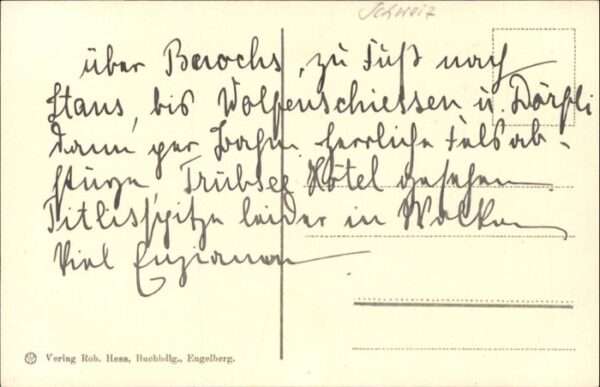 Schweiz
über Buochs, zu Fuß nach
Stans, bis Wolfenschiessen u. Dörfli
dann per Bahn. Herrliche Felsab-
stürze, Trübsee Hotel gesehen.
Titlisspitze leider in Wolken
Viel Enzianen
Verlag Rob. Hess, Buchhdlg., Engelberg.